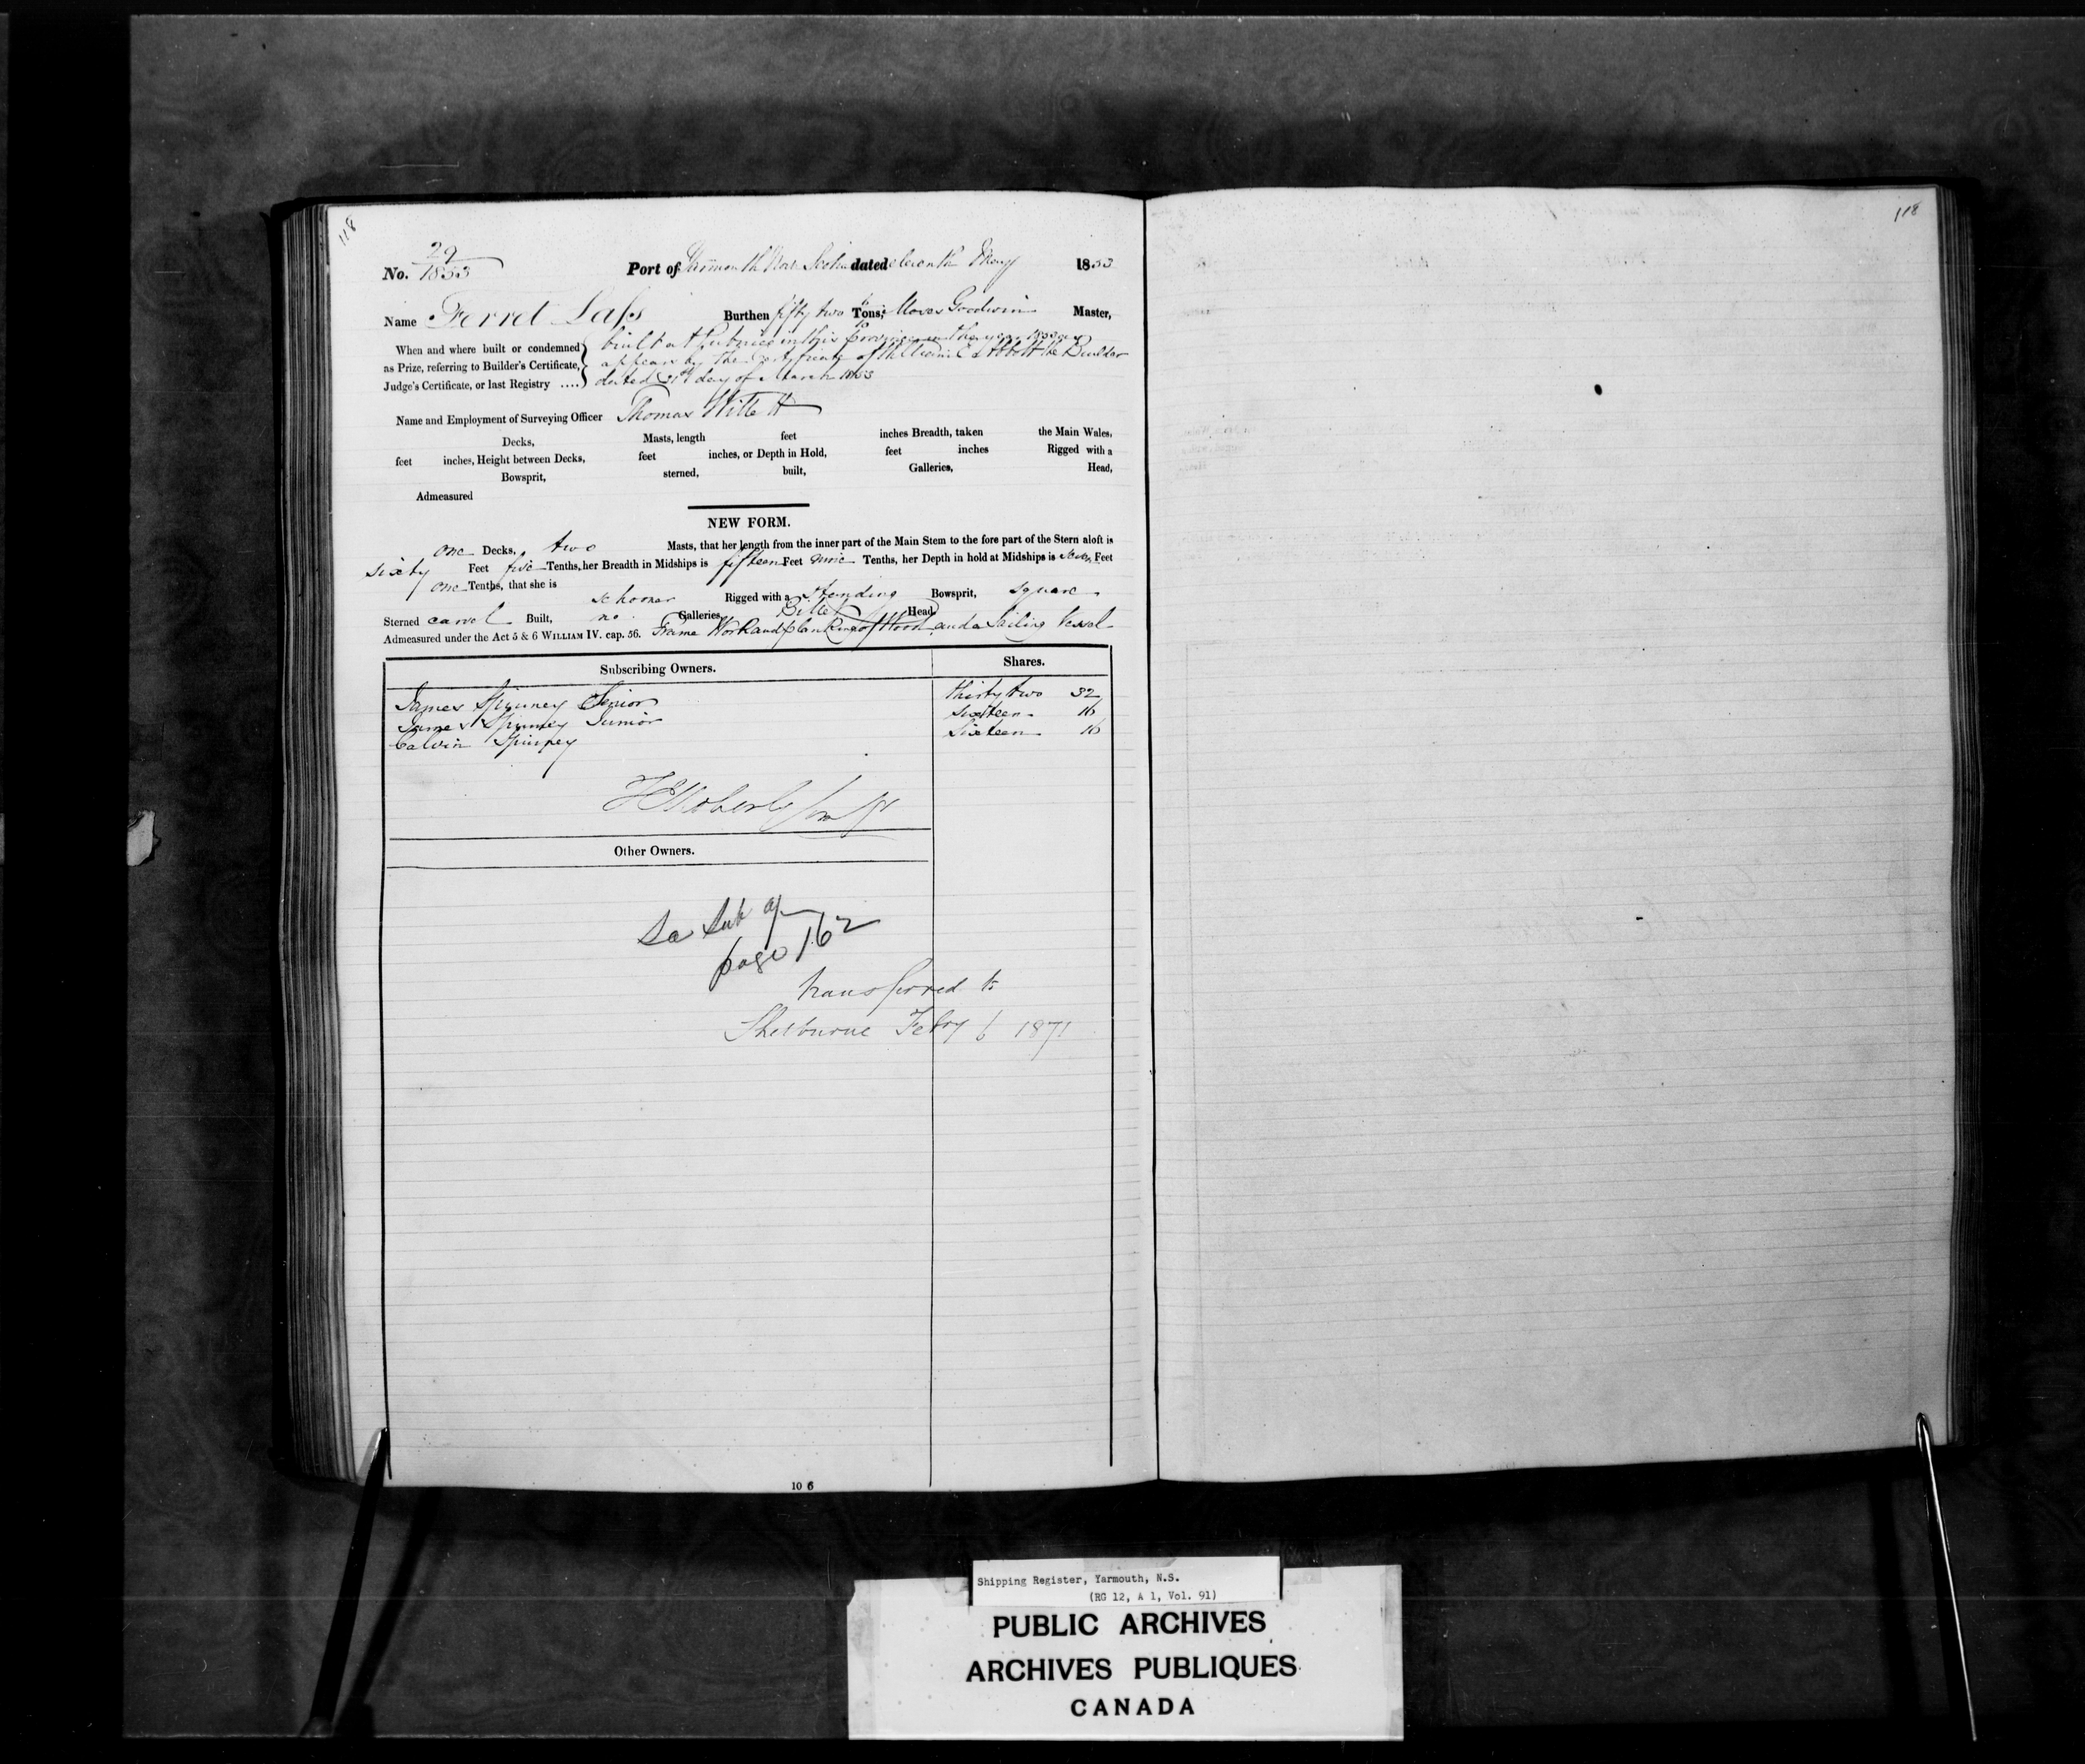 118
118
29
No. 1853 Port of Yarmouth Nova Scotia dated eleventh May 1853
Name Ferret Lass Burthen fifty two Tons; Moses Goodwin Master,
When and where built or condemned as Prize, referring to Builder's Certificate, Judge's Certificate, or last Registry ....
built at Pubnico in this Province in the year 1853 as
appears by the Certificate of William C Abbott the Builder
dated 31st day of March 1853
Name and Employment of Surveying Officer Thomas Willett
Decks, Masts, length feet inches Breadth, taken the Main Wales,
feet inches, Height between Decks, feet inches, or Depth in Hold, feet inches Rigged with a
Bowsprit, sterned, built, Galleries, Head,
Admeasured
NEW FORM.
one Decks, two Masts, that her length from the inner part of the Main Stem to the fore part of the Stern aloft is
sixty Feet five Tenths, her Breadth in Midships is fifteen Feet nine Tenths, her Depth in hold at Midships is seven Feet
one Tenths, that she is
schooner Rigged with a standing Bowsprit, square
Sterned carvel Built, no Galleries, Billet Head
Admeasured under the Act 5 & 6 WILLIAM IV. cap. 56. Frame Work and planking of Wood and a Sailing Vessel
Subscribing Owners. Shares.
James Spinney Senior thirty two 32
James Spinney Junior sixteen 16
Calvin Spinney Sixteen 16
Other Owners.
page 162
transferred to
Shelburne Febry 6 1871
10 6
Shipping Register, Yarmouth, N.S.
(RG 12, A 1, Vol. 91)
PUBLIC ARCHIVES
ARCHIVES PUBLIQUES
CANADA